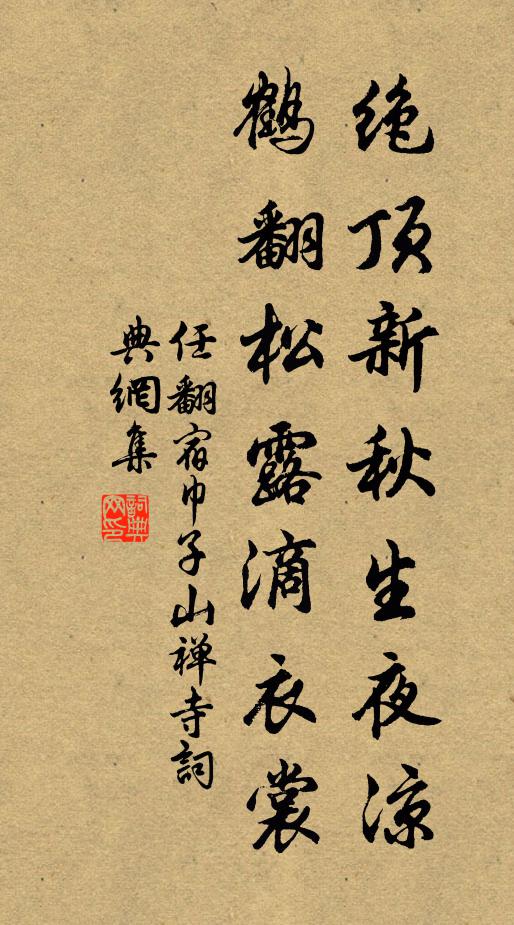 绝顶新秋生夜凉
鹤翻松露滴衣裳
任翻宿巾子山禅寺詞
典網集
詞典网印